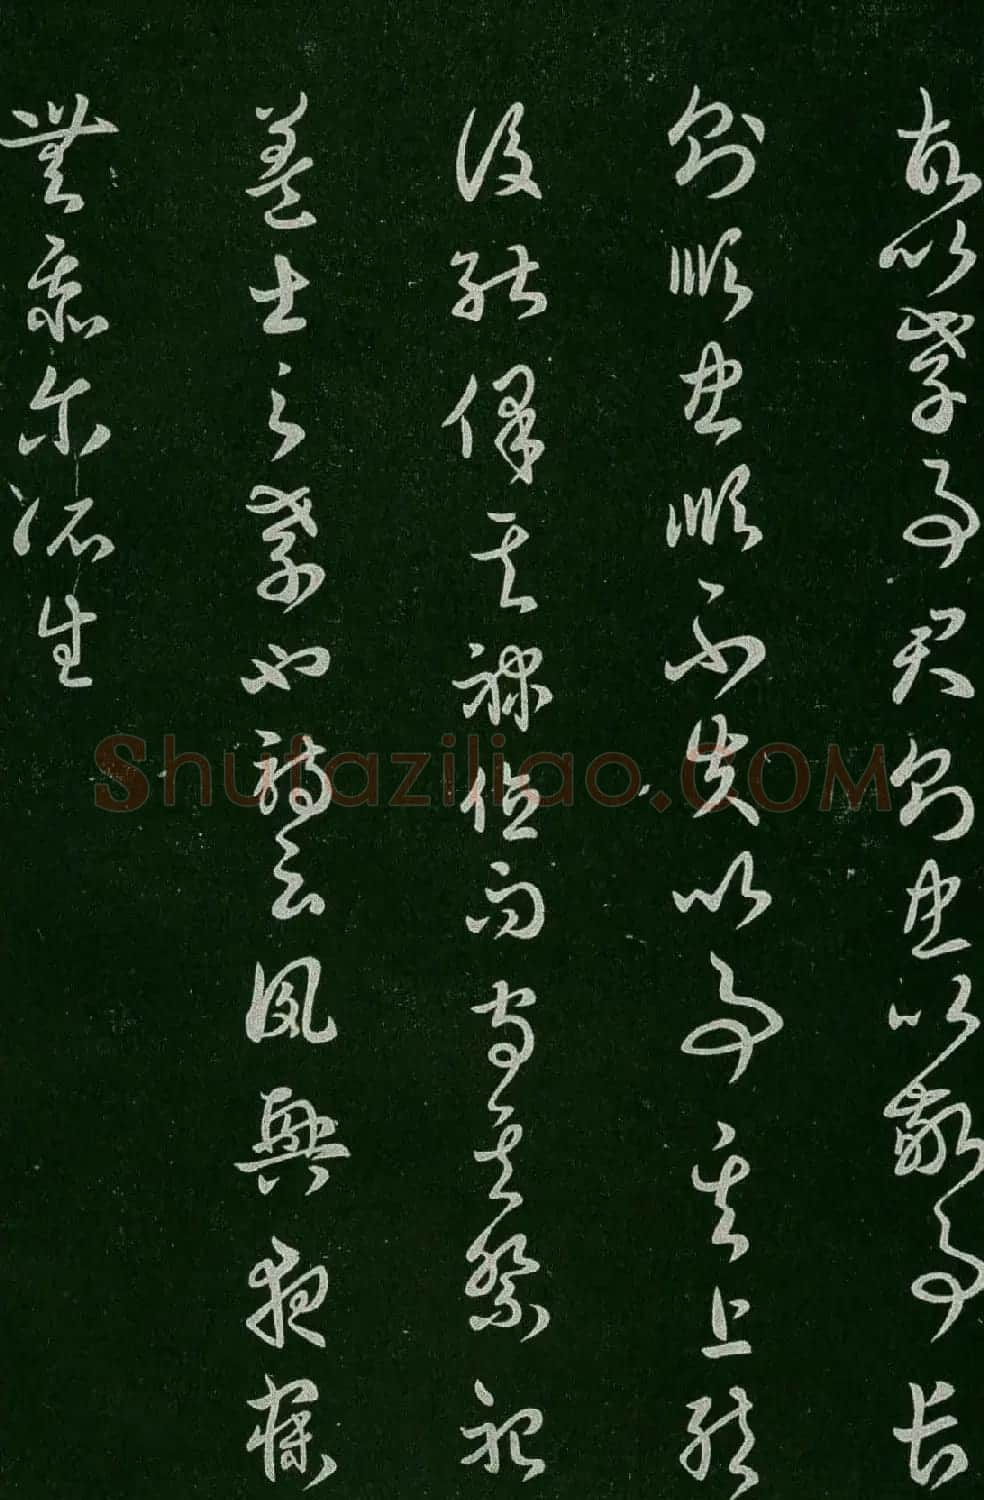 故以孝事君則忠以敬事長
則順忠順不失以事其上然
後能保其祿位而守其祭祀
蓋士之孝也詩云夙興夜寐
無忝爾所生
Shufaziliao.COM